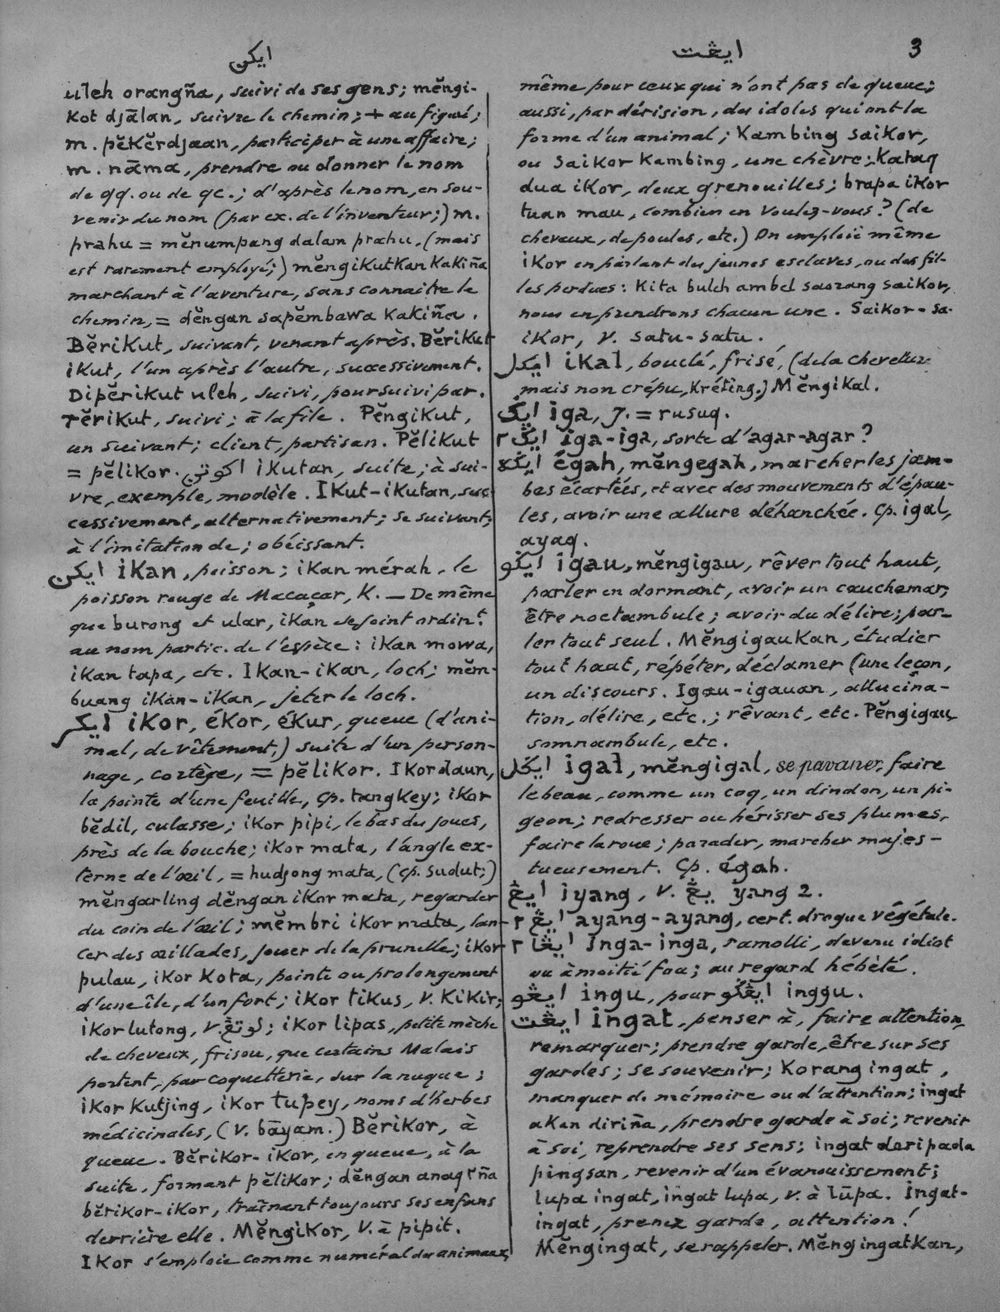 ايکن
ايڠت
3
uleh orangña, suivi de ses gens; mĕngi-
kot djālan, suivre le chemin; + au figuré;
m. pĕkĕrdjaan, participer à une affaire;
m. nāma, prendre ou donner le nom
de qq. ou de qc.; d'après le nom, en sou-
venir du nom (par ex. de l'inventeur;) m.
prahu = mĕnumpang dalam prahu, (mais
est rarement employé;) mĕngikutkan kakiña
marchant à l'aventure, sans connaître le
chemin, = dĕngan sapĕmbawa kakiña.
Bĕrikut, suivant, venant après. Bĕrikut
ikut, l'un après l'autre, successivement.
Dipĕrikut uleh, suivi, poursuivi par.
Tĕrikut, suivi; à la file. Pĕngikut,
un suivant; client, partisan. Pĕlikut
= pĕlikor. ikutan, suite; à sui-
vre, exemple, modèle. Ikut-ikutan, suc
cessivement, alternativement; se suivant,
à l'imitation de; obéissant.
ايکن ikan, poisson; ikan mérah, le
poisson rouge de Macaçar, K. — De même
que burong et ular, ikan se joint ordin.t
au nom partic. de l'espèce: ikan mowa,
ikan tapa, etc. Ikan-ikan, loch; mĕm-
buang ikan-ikan, jeter le loch.
ايکر ikor, ékor, ékur, queue (d'ani-
mal, de vêtement,) suite d'un person-
nage, cortège, = pĕlikor. Ikor daun,
la pointe d'une feuille, cp. tangkey; ikor
bĕdil, culasse; ikor pipi, le bas du joues,
près de la bouche; ikor mata, l'angle ex-
terne de l'œil, = hudjong mata, (cp. sudut;)
mĕngarling dĕngan ikor mata, regarder
du coin de l'œil; mĕmbri ikor mata, lan-
cer des œillades, jouer de la prunelle; ikor
pulau, ikor kota, pointe ou prolongement
d'une île, d'un fort; ikor tikus, v. kikir;
ikor lutong, v. لوتڠ; ikor lipas, petite mèche
de cheveux, frisou, que certains Malais
portent, par coquetterie, sur la nuque;
ikor kutjing, ikor tupey, noms d'herbes
médicinales, (v. bāyam.) Bĕrikor, à
queue. Bĕrikor-ikor, en queue, à la
suite, formant pĕlikor; dĕngan anaqña
bĕrikor-ikor, traînant toujours ses enfans
derrière elle. Mĕngikor, v. à pipit.
Ikor s'emploie comme numéral des animaux,
même pour ceux qui n'ont pas de queue;
aussi, par dérision, des idoles qui ont la
forme d'un animal; Kambing saikor,
ou saikor kambing, une chèvre; kataq
dua ikor, deux grenouilles; brapa ikor
tuan mau, combien en voulez-vous? (de
chevaux, de poules, etc.) On emploie même
ikor en parlant des jeunes esclaves, ou des fil-
les perdues: kita buleh ambel saorang saikor,
nous en prendrons chacun une. Saikor-sa-
ikor, v. satu-satu.
ايکل ikal, bouclé, frisé, (de la chevelure
mais non crépu, kréting;) Mĕngikal.
ايݢ iga, J. = rusuq.
ايݢ٢ iga-iga, sorte d'agar-agar?
ايݢه égah, mĕngegah, marcher les jam-
bes écartées, et avec des mouvements d'épau-
les, avoir une allure déhanchée. Cp. igal,
ayaq.
ايݢو igau, mĕngigau, rêver tout haut,
parler en dormant, avoir un cauchemar,
être noctambule; avoir du délire; par-
ler tout seul. Mĕngigaukan, étudier
tout haut, répéter, déclamer (une leçon,
un discours. Igau-igauan, allucina-
tion, délire, etc.; rêvant, etc. Pĕngigau,
somnambule, etc.
ايݢل igal, mĕngigal, se pavaner, faire
le beau, comme un coq, un dindon, un pi-
geon; redresser ou hérisser ses plumes,
faire la roue; parader, marcher majes-
tueusement. Cp. égah.
ايڠ iyang, v. يڠ yang 2.
ايڠ٢ ayang-ayang, cert. drogue végétale.
ايڠا٢ inga-inga, ramolli, devenu idiot
ou à moitié fou; au regard hébété.
ايڠو ingu, pour ايڠݢو inggu.
ايڠت ingat, penser à, faire attention,
remarquer; prendre garde, être sur ses
gardes; se souvenir; Korang ingat,
manquer de mémoire ou d'attention; ingat
akan diriña, prendre garde à soi; revenir
à soi, reprendre ses sens; ingat daripada
pingsan, revenir d'un évanouissement;
lupa ingat, ingat lupa, v. à lūpa. Ingat-
ingat, prenez garde, attention!
Mĕngingat, se rappeler. Mĕngingatkan,